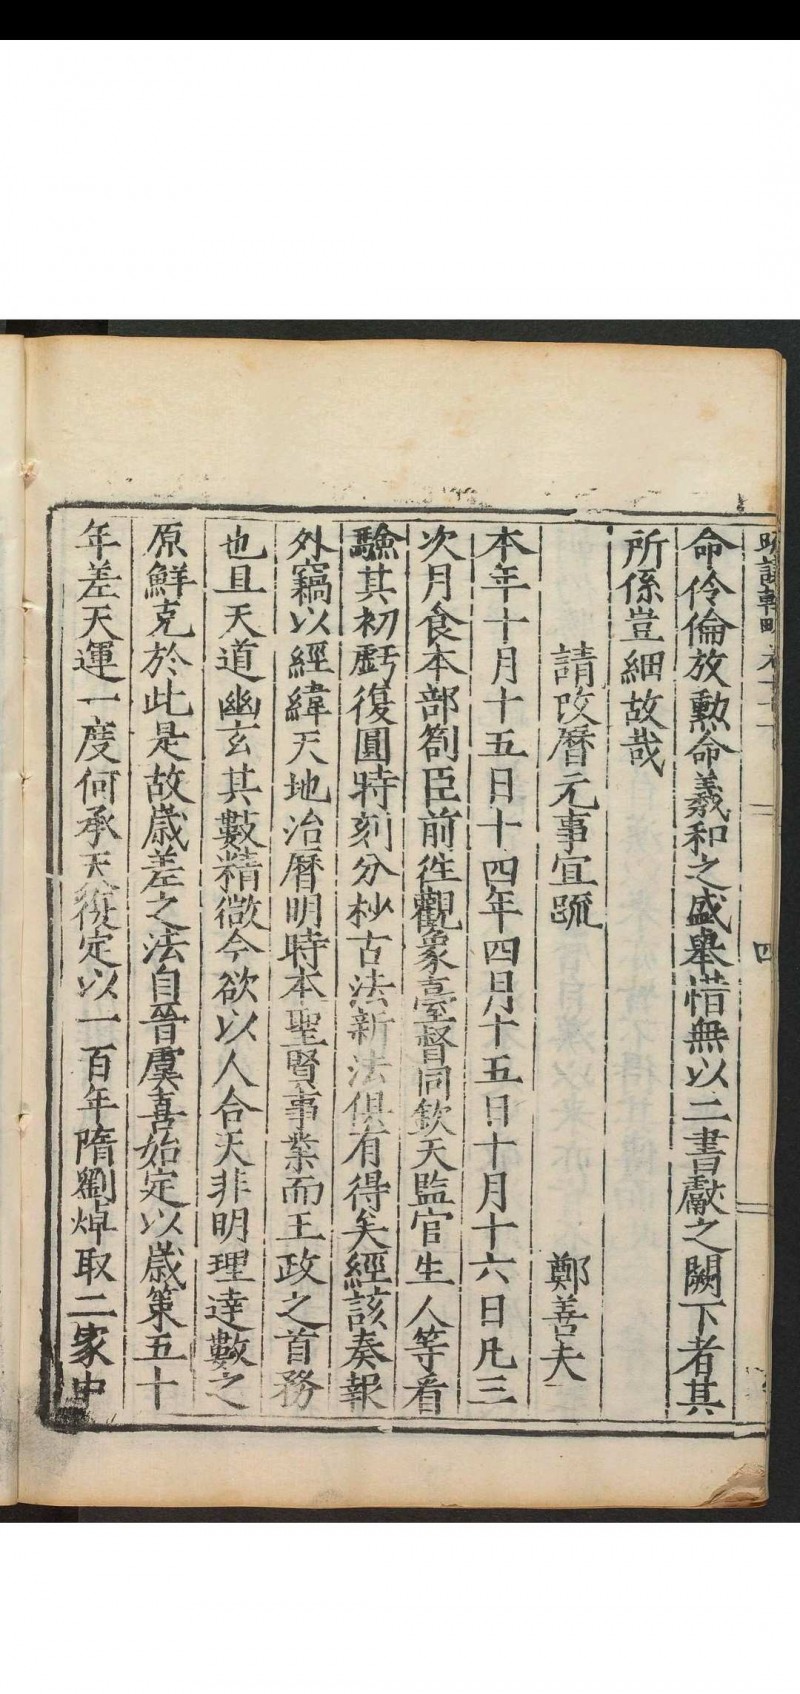 命伶倫放勲命羲和之盛舉惜無以二書獻之闕下者其
所係豈細故哉
請改曆元事宜䟽 鄭善夫
本年十月十五日十四年四月十五日十月十六日凡三
次月食本部劄臣前徃觀象臺督同欽天監官生人等看
驗其初虧復圓時刻分杪古法新法俱有得矣經該奏報
外竊以經緯天地治曆明時本聖賢事業而王政之首務
也且天道幽玄其數精微今欲以人合天非明理達數之
原鮮克於此是故歲差之法自晉虞喜始定以歲策五十
年差天運一度何承天復定以一百年隋劉焯取二家中
四